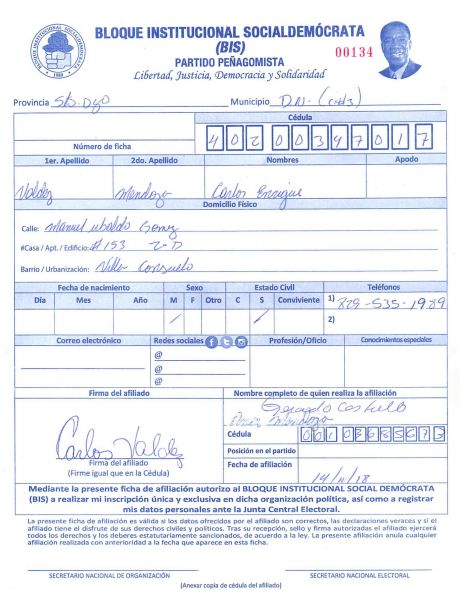 BLOQUE INSTITUCIONAL SOCIALDEMÓCRATA
(BIS)
00134
PARTIDO PEÑAGOMISTA
Libertad, Justicia, Democracia y Solidaridad
BLOQUE INSTITUCIONAL SOCIALDEMOCRATA
Provincia Sto. Dgo Municipio D.N.
Cédula
Número de ficha 40200347017
1er. Apellido 2do. Apellido Nombres Apodo
Valdez Mendoza Carlos Enrique
Domicilio Físico
Calle: Manuel Ubaldo Gomez
#Casa / Apt. / Edificio: #153 2-D
Barrio / Urbanización: Villa Consuelo
Fecha de nacimiento Sexo Estado Civil Teléfonos
Día Mes Año M F Otro C S Conviviente 1) 829-535-1989
/ / 2)
Correo electrónico Redes sociales Profesión/Oficio Conocimientos especiales
@
@
@
Firma del afiliado Nombre completo de quien realiza la afiliación
Gerardo Castillo
Mendoza
Cédula 00103685673
Carlos Valdez
Posición en el partido
Firma del afiliado
(Firme igual que en la Cédula)
Fecha de afiliación 14/11/18
Mediante la presente ficha de afiliación autorizo al BLOQUE INSTITUCIONAL SOCIAL DEMÓCRATA
(BIS) a realizar mi inscripción única y exclusiva en dicha organización política, así como a registrar
mis datos personales ante la Junta Central Electoral.
La presente afiliación es válida si los datos ofrecidos por el afiliado son correctos, las declaraciones veraces y si el
afiliado tiene el disfrute de sus derechos civiles y políticos. Tras su recepción, sello y firma autorizadas el afiliado ejercerá
todos los derechos y los deberes estatutariamente sancionados, de acuerdo a la ley. La presente afiliación anula cualquier
afiliación realizada con anterioridad a la fecha que aparece en esta ficha.
SECRETARIO NACIONAL DE ORGANIZACIÓN SECRETARIO NACIONAL ELECTORAL
(Anexar copia de cédula del afiliado)